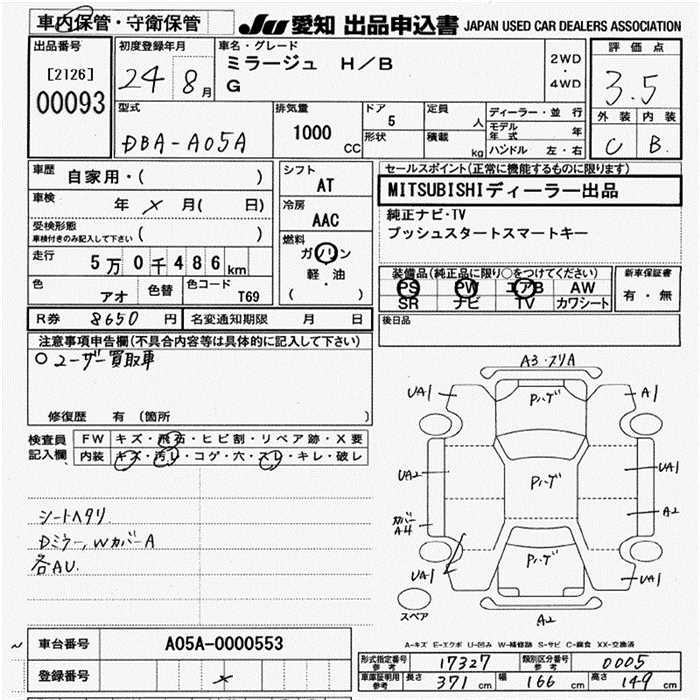 車内保管・守衛保管
JU 愛知 出品申込書 JAPAN USED CAR DEALERS ASSOCIATION
出品番号
[2126]
00093
初度登録年月
24 8月
車名・グレード
ミラージュ H/B
G
2WD
・
4WD
評価点
3.5
外装 内装
C B
型式
DBA-A05A
排気量
1000 CC
ドア
5
形状
定員
人
積載
kg
ディーラー・並行
モデル年式 年
ハンドル 左・右
車歴
自家用・( )
車検
年 × 月( 日)
受検形態
車検付きのみ記入して下さい ( )
走行
5万0千486km
色
アオ
色替
色コード
T69
シフト
AT
冷房
AAC
燃料
ガソリン
軽・油
( )
セールスポイント(正常に機能するものに限ります)
MITSUBISHIディーラー出品
純正ナビ・TV
プッシュスタートスマートキー
装備品(純正品に限り○をつけてください)
PS PW エアB AW
SR ナビ TV カワシート
新車保証書
有・無
R券 8650 円
名変通知期限 月 日
後日品
注意事項申告欄(不具合内容等は具体的に記入して下さい)
○ユーザー買取車
修復歴 有(箇所
検査員記入欄
FW キズ・飛石・ヒビ割・リペア跡・X要
内装 キズ・汚レ・コゲ・穴・スレ・キレ・破レ
シートヘタリ
Dミラー,WカバーA
各AU.
A3・スリA
UA1
Pハゲ
A1
UA2
Pハゲ
UA1
カバーA4
A2
UA1
Pハゲ
UA1
スペア
A2
A-キズ E-エクボ U-凹み W-補修跡 S-サビ C-腐食 XX-交換済
~ 車台番号 A05A-0000553
登録番号 ×
形式指定番号 参考 17327
類別区分番号 参考 0005
車庫証明用 参考 長さ 371 cm 幅 166 cm 高さ 149 cm